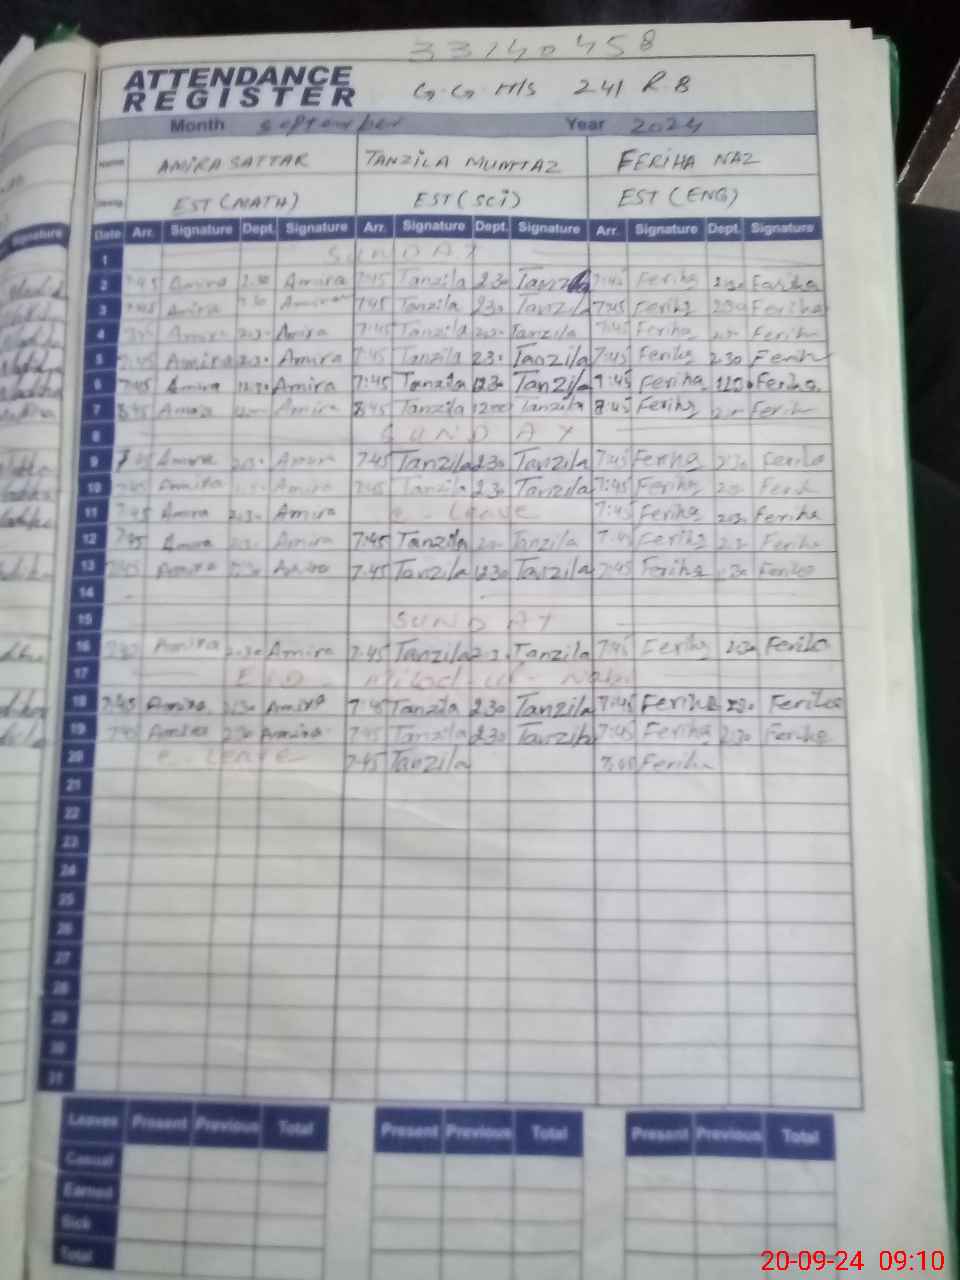 33140458
ATTENDANCE
REGISTER
G.G.H/S 241 R.B
Month September Year 2024
Name AMIRA SATTAR TANZILA MUMTAZ FERIHA NAZ
EST (MATH) EST (SCI) EST (ENG)
Signature
Date Arr. Signature Dept. Signature Arr. Signature Dept. Signature Arr. Signature Dept. Signature
1 SUNDAY
2 7:45 Amira 2:30 Amira 7:45 Tanzila 230 Tanzila 7:45 Feriha 230 Feriha
3 7:45 Amira Amira 7:45 Tanzila 230 Tanzila 7:45 Feriha 230 Feriha
4 Amira 230 Amira 7:45 Tanzila 230 Tanzila 7:45 Feriha 230 Feriha
5 7:45 Amira 230 Amira 7:45 Tanzila 230 Tanzila 7:45 Feriha 2:30 Feriha
6 7:45 Amira 1230 Amira 7:45 Tanzila 1230 Tanzila 7:45 Feriha 1230 Feriha
7 8:45 Amira Amira 8:45 Tanzila 1200 Tanzila 8:45 Feriha Feriha
8 SUNDAY
9 Amira 230 Amira 7:45 Tanzila 230 Tanzila 7:45 Feriha 230 Feriha
10 7:45 Amira Amira 7:45 Tanzila 230 Tanzila 7:45 Feriha 230 Feriha
11 7:45 Amira 230 Amira c. Leave 7:45 Feriha 230 Feriha
12 7:45 Amira 230 Amira 7:45 Tanzila 230 Tanzila 7:45 Feriha 230 Feriha
13 7:45 Amira Amira 7:45 Tanzila 1230 Tanzila 7:45 Feriha Feriha
14
15 SUNDAY
16 7:45 Amira 2:30 Amira 7:45 Tanzila 230 Tanzila 7:45 Feriha 230 Feriha
17 EID Milad-ul-Nabi
18 7:45 Amira 230 Amira 7:45 Tanzila 230 Tanzila 7:45 Feriha 230 Feriha
19 7:45 Amira 230 Amira 7:45 Tanzila 230 Tanzila 7:45 Feriha 2:30 Feriha
20 c. Leave 7:45 Tanzila Feriha
21
22
23
24
25
26
27
28
29
30
31
Leaves Present Previous Total Present Previous Total Present Previous Total
Casual
Earned
Sick
Total
20-09-24 09:10